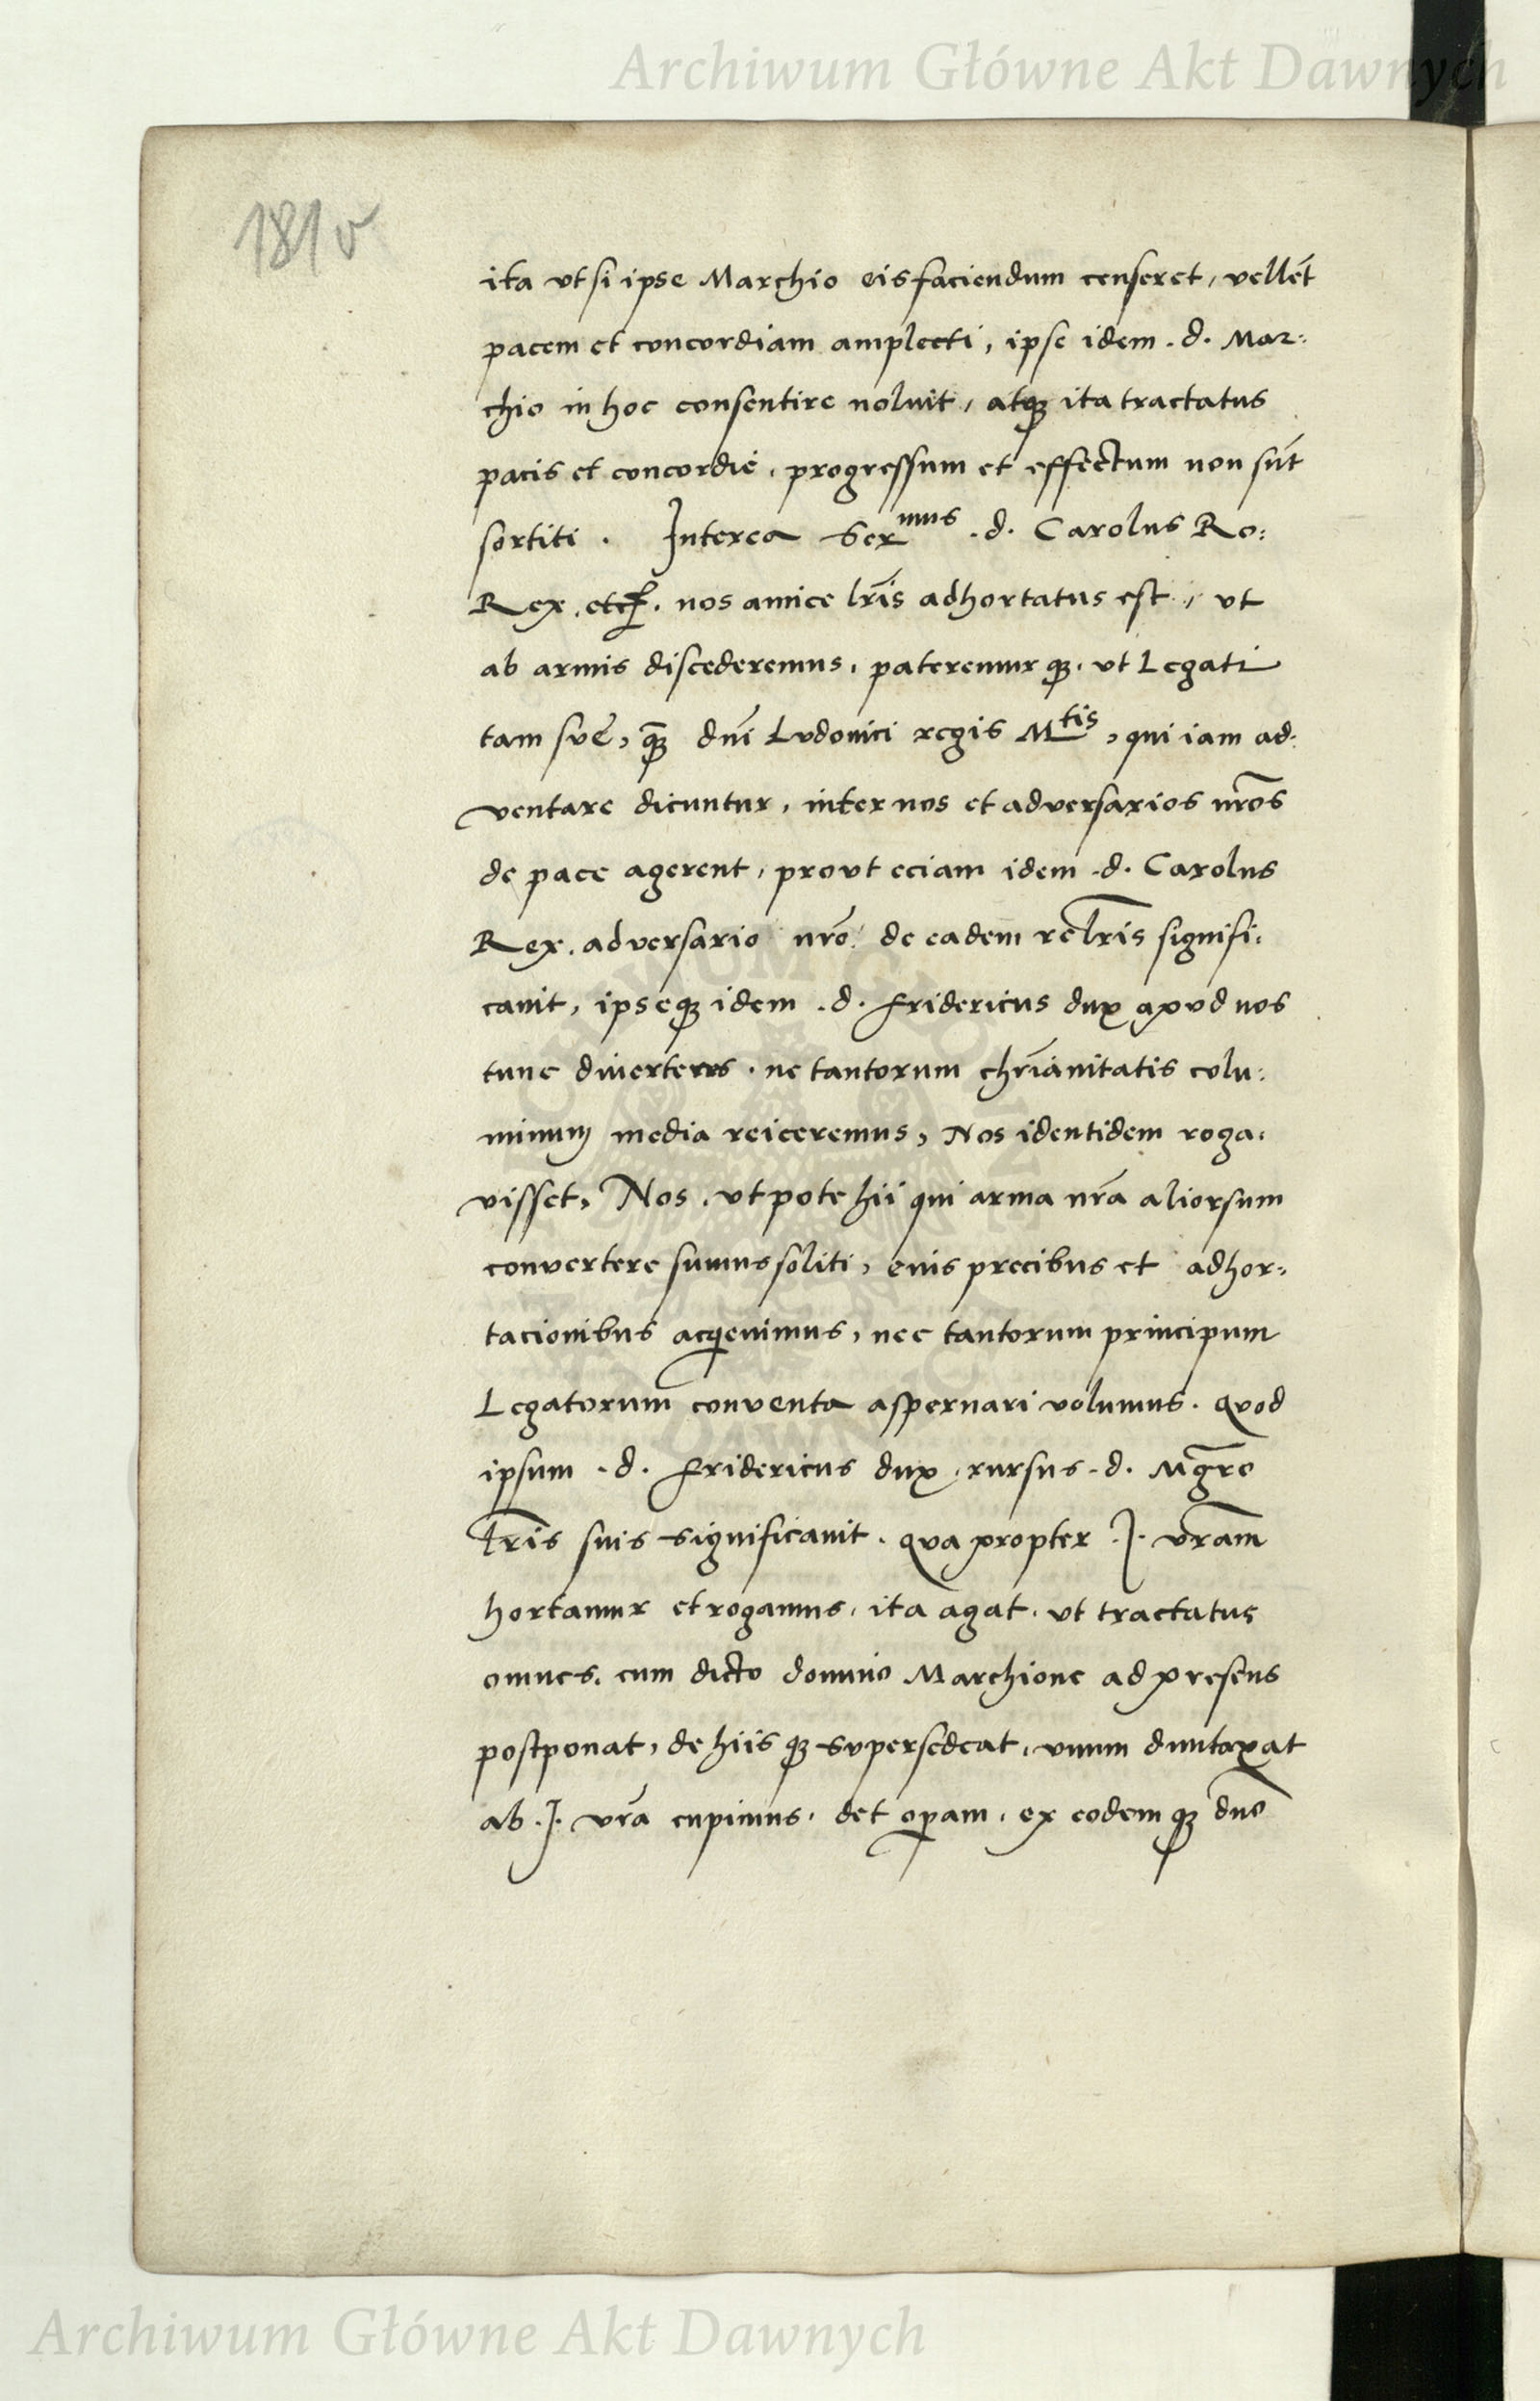 Archiwum Główne Akt Dawnych
181v
ita vt si ipse Marchio eis faciendum censeret, vellēt
pacem et concordiam amplecti, ipse idem .d. Mar:
chio in hoc consentire noluit, atqꝫ ita tractatus
pacis et concordie, progressum et effectum non sūt
sortiti. Interea Serᵐᵘˢ .d. Carolus Ro:
Rex .etcꝭ. nos amice lr̄is adhortatus est, vt
ab armis discederemus, pateremur qꝫ. vt Legati
tam sue, qꝫ̄ dn̄i Ludouici regis Mᵗⁱˢ, qui iam ad:
ventare dicuntur, inter nos et adversarios nr̄os
de pace agerent, provt eciam idem .d. Carolus
Rex. adversario nr̄o de eadem re lr̄is signifi:
cauit, ipseqꝫ idem .d. Fridericus dux apvd nos
tunc diuertens. ne tantorum chr̄ianitatis colu:
minum media reiceremus, Nos identidem roga:
visset, Nos. vtpote hii qui arma nr̄a aliorsum
convertere sumus soliti, euis precibus et adhor:
tacionibus acqieuimus, nec tantorum principum
Legatorum conventa aspernari volumus. Qvod
ipsum .d. Fridericus dux. rursus .d. Mgr̄o
lr̄is suis significauit. Qva propter .I. vr̄am
hortamur et rogamus, ita agat. vt tractatus
omnes. cum dicto domino Marchione ad presens
postponat, de hiis qꝫ svpersedeat, vnum duntaxat
ab .I. vr̄a cupimus. det opam. ex eodem qꝫ dn̄o
Archiwum Główne Akt Dawnych